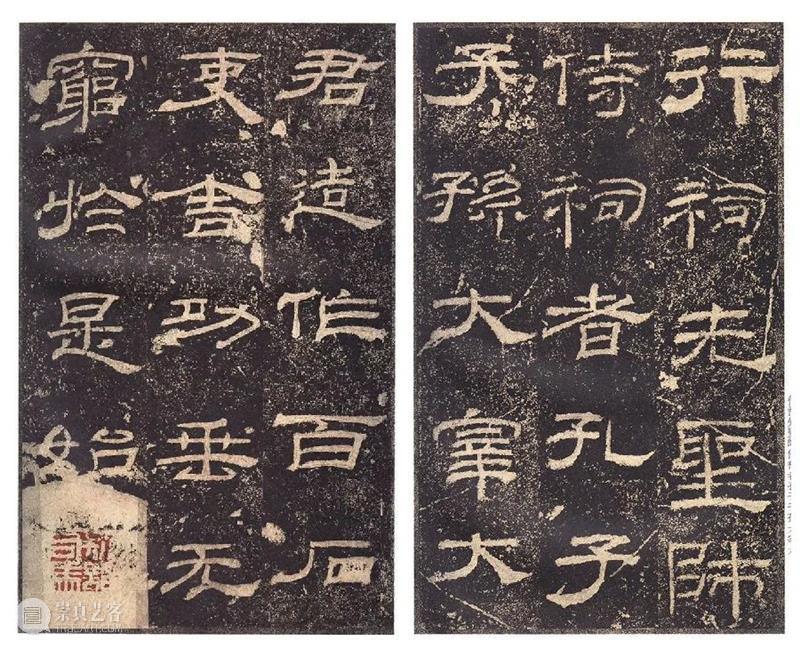 行祠先聖師
侍祠者孔子
子孫大宰大
君造作百石
吏舍功垂无
窮於是始
崇真艺客